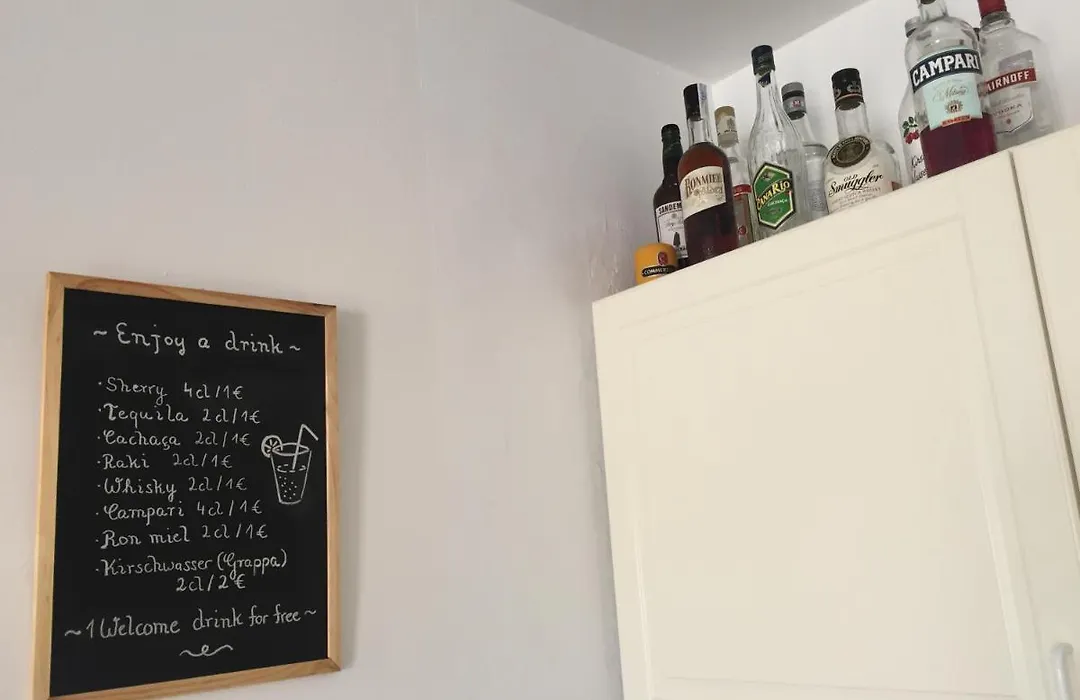 ~ Enjoy a drink ~
· Sherry 4cl/1€
· Tequila 2cl/1€
· Cachaça 2cl/1€
· Raki 2cl/1€
· Whisky 2cl/1€
· Campari 4cl/1€
· Ron miel 2cl/1€
· Kirschwasser (Grappa)
2cl/2€
~ 1 Welcome drink for free ~
SANDEM
RONMIEL
CANARIO
CACHAÇA
OLD
Smuggler
CAMPARI
Milano
MIRNOFF
VODKA